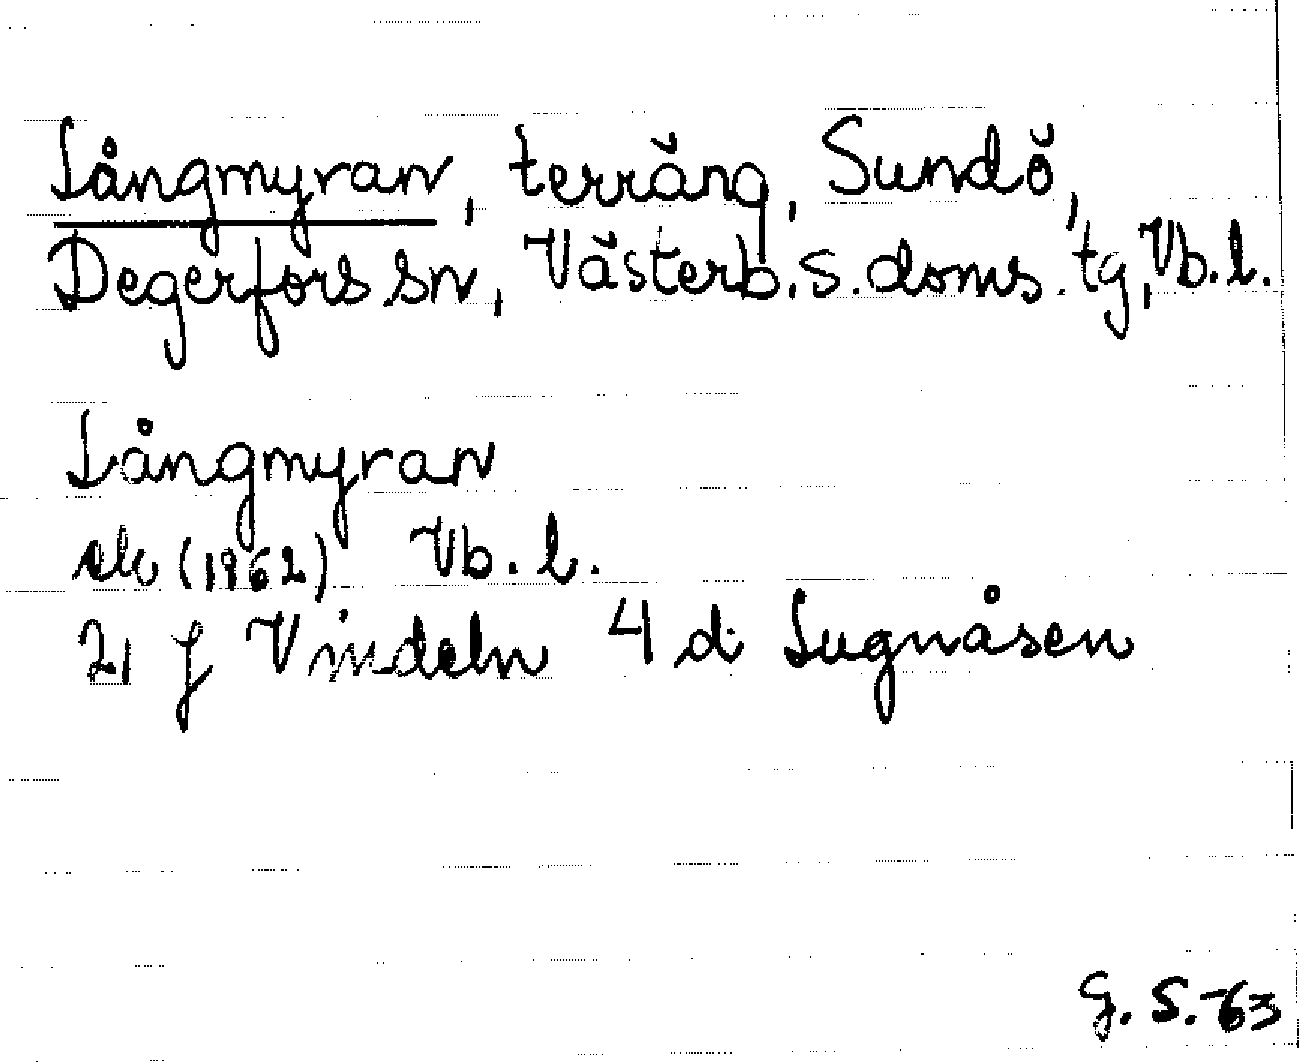 Långmyran, terräng, Sundö,
Degerfors sn, Västerb. s. doms. tg, Vb. l.
Långmyran
ek (1962) Vb. l.
21 J Vindeln 4 d Lugnåsen
G. S. -63